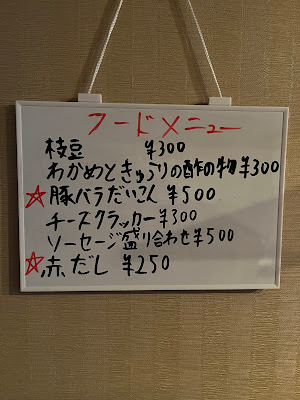 フードメニュー
枝豆 ¥300
わかめときゅうりの酢の物 ¥300
☆豚バラだいこん ¥500
チーズクラッカー ¥300
ソーセージ盛り合わせ ¥500
☆赤だし ¥250